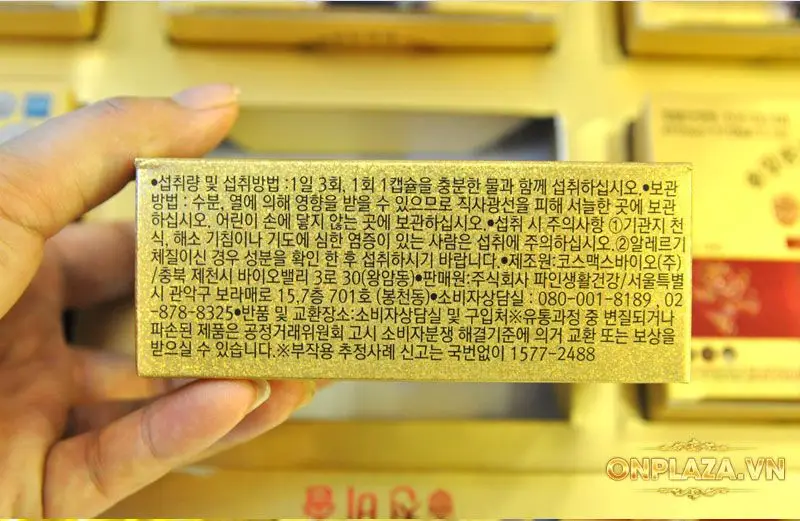 •섭취량 및 섭취방법 : 1일 3회, 1회 1캡슐을 충분한 물과 함께 섭취하십시오. •보관
방법 : 수분, 열에 의해 영향을 받을 수 있으므로 직사광선을 피해 서늘한 곳에 보관
하십시오. 어린이 손에 닿지 않는 곳에 보관하십시오. •섭취 시 주의사항 ①기관지 천
식, 해소 기침이나 기도에 심한 염증이 있는 사람은 섭취에 주의하십시오. ②알레르기
체질이신 경우 성분을 확인 한 후 섭취하시기 바랍니다. •제조원:코스맥스바이오(주)
/충북 제천시 바이오밸리 3로 30(왕암동) •판매원:주식회사 파인생활건강/서울특별
시 관악구 보라매로 15,7층 701호 (봉천동) •소비자상담실 : 080-001-8189 , 02
-878-8325 •반품 및 교환장소:소비자상담실 및 구입처 ※유통과정 중 변질되거나
파손된 제품은 공정거래위원회 고시 소비자분쟁 해결기준에 의거 교환 또는 보상을
받으실 수 있습니다. ※부작용 추정사례 신고는 국번없이 1577-2488
ONPLAZA.VN